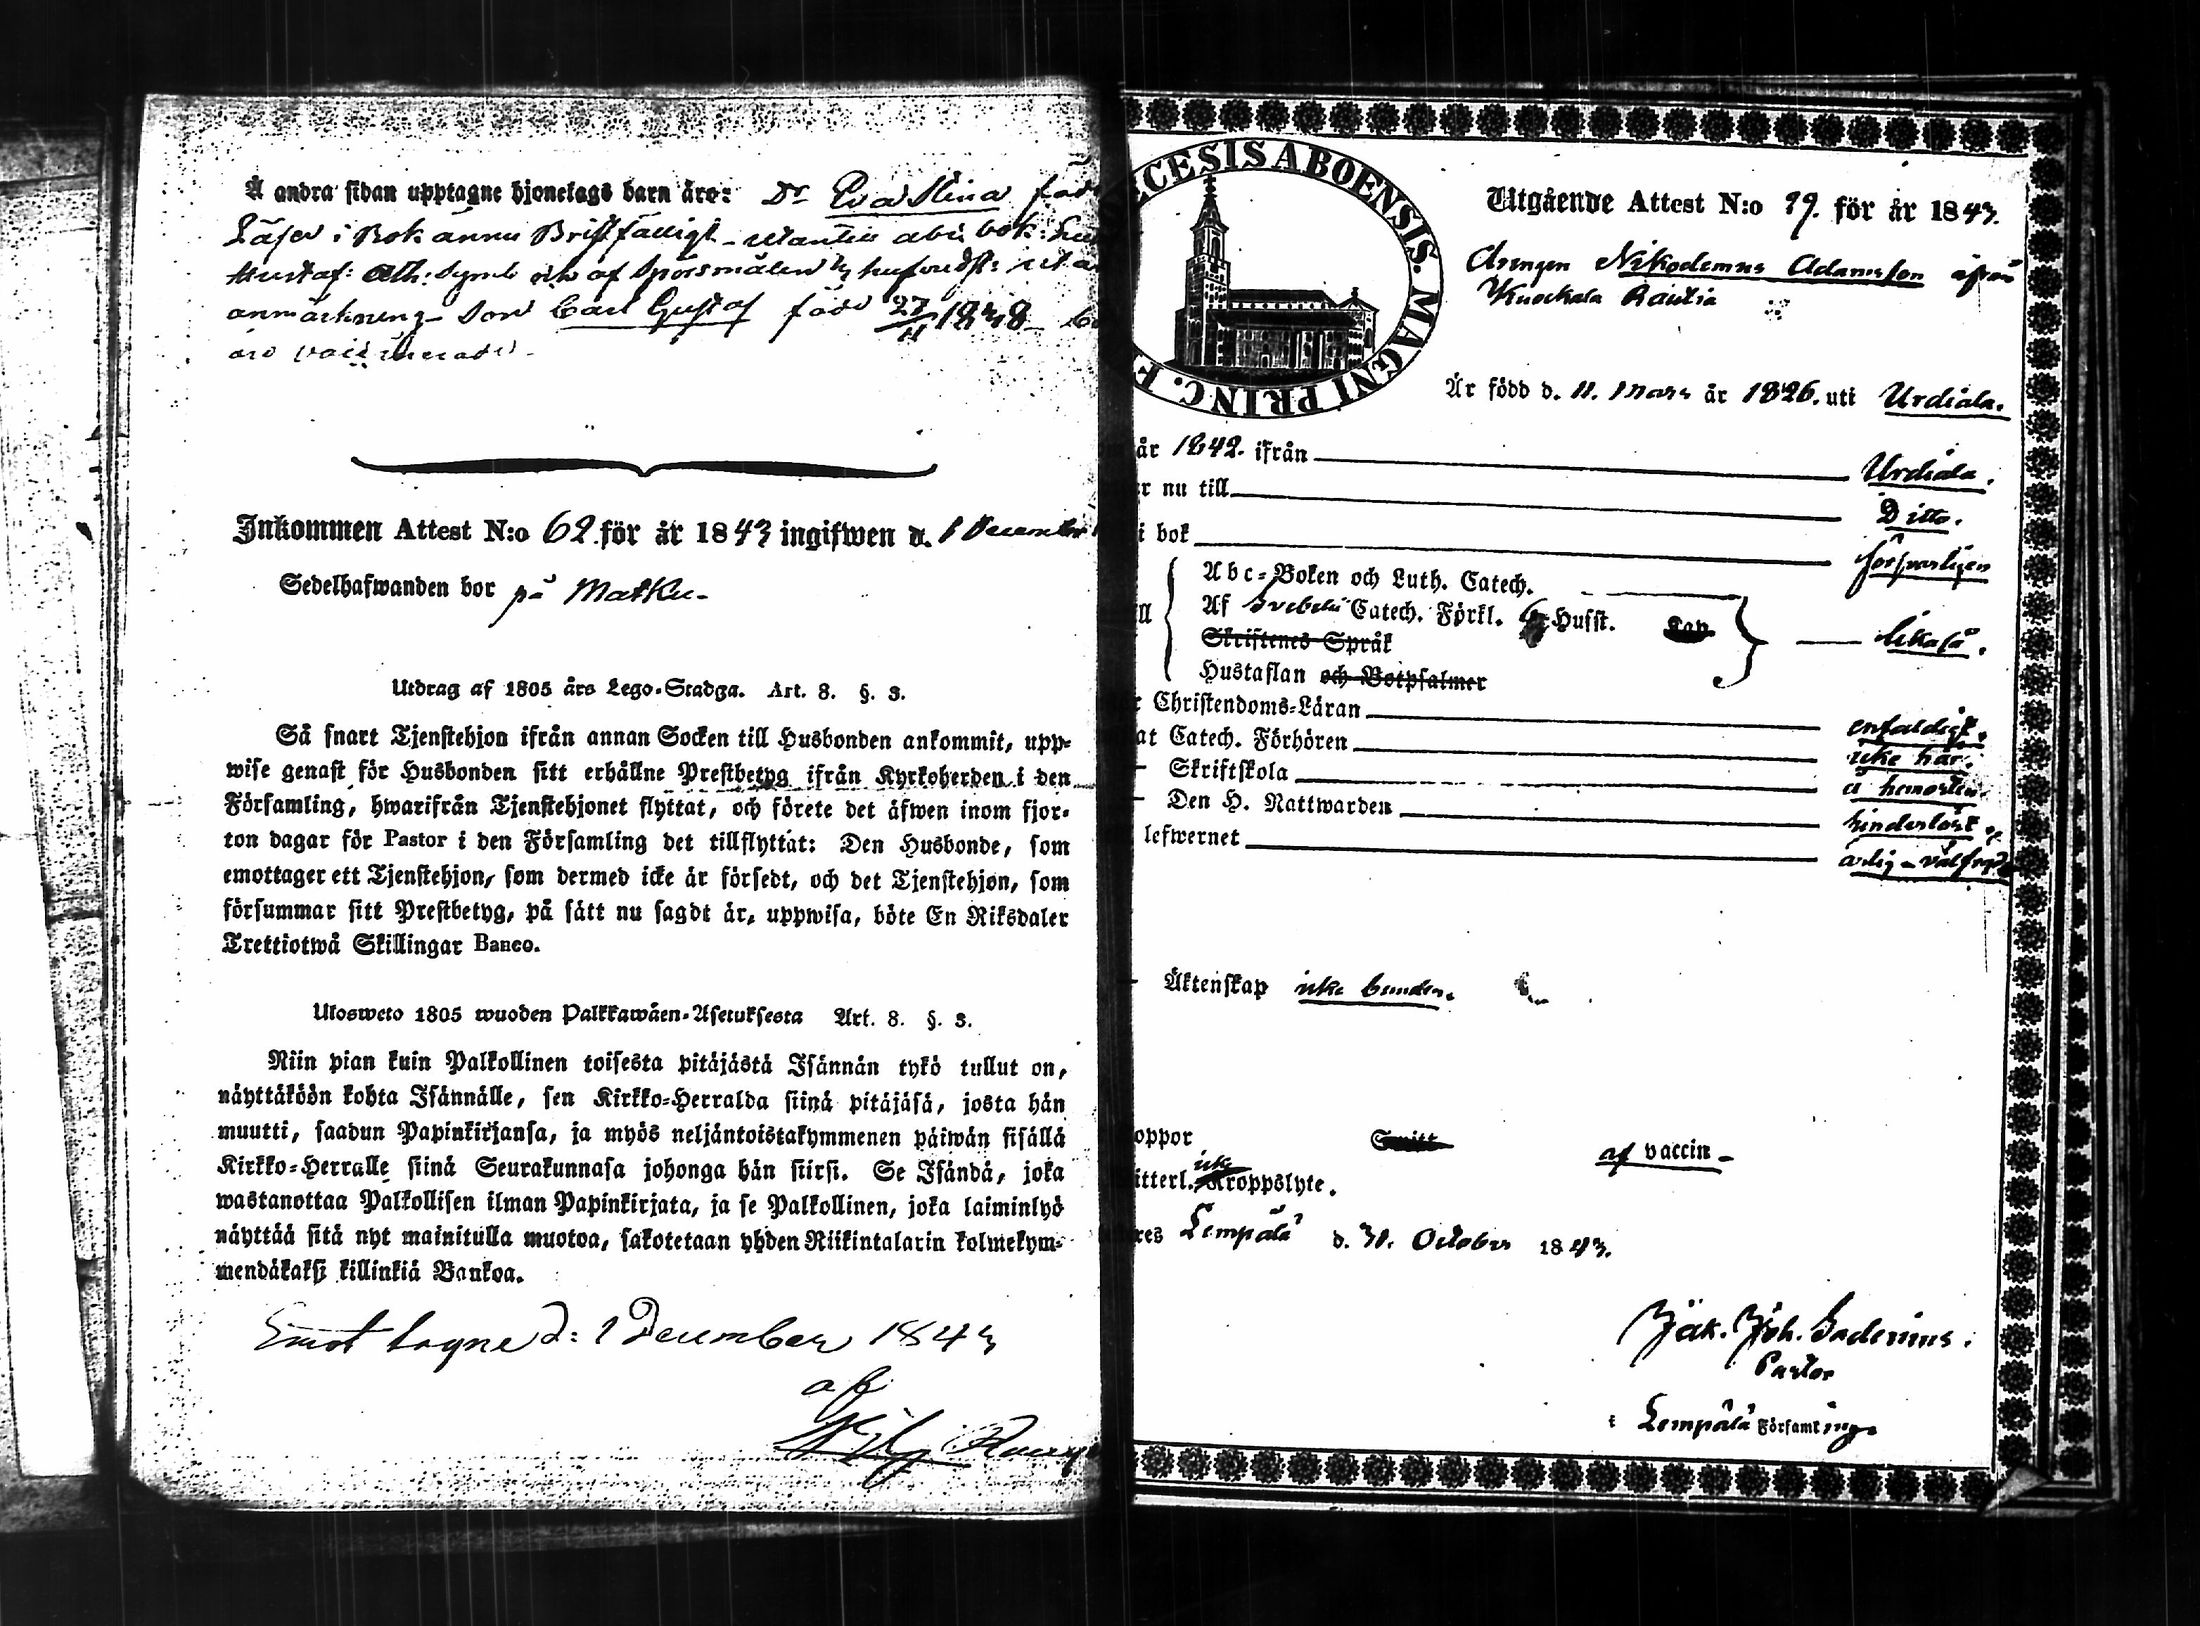 Å andra sidan upptagne hjonelags barn äro: Dr Eva Stina föd
Läser i Bok ännu Bristfälligt - utantill abc bok:
Hustaf: Ath: Symb och af Spörsmålen
anmärkning - Son Carl Gustaf född 27/11 1838
äro vaccinerade -
Inkommen Attest N:o 62 för år 1843 ingifwen d. 1 December
Sedelhafwanden bor på Matku -
Utdrag af 1805 års Lego-Stadga. Art. 8. §. 3.
Så snart Tjenstehjon ifrån annan Socken till Husbonden ankommit, upp-
wise genast för Husbonden sitt erhållne Prestbetyg ifrån Kyrkoherden i den
Församling, hwarifrån Tjenstehjonet flyttat, och förete det äfwen inom fjor-
ton dagar för Pastor i den Församling det tillflyttat: Den Husbonde, som
emottager ett Tjenstehjon, som dermed icke är försedt, och det Tjenstehjon, som
försummar sitt Prestbetyg, på sätt nu sagdt är, uppwisa, böte En Riksdaler
Trettiotwå Skillingar Banco.
Ulosweto 1805 wuoden Palkkawäen-Asetuksesta Art. 8. §. 3.
Niin pian kuin Palkollinen toisesta pitäjästä Isännän tykö tullut on,
näyttäköön kohta Isännälle, sen Kirkko-Herralda siinä pitäjäsä, josta hän
muutti, saadun Papinkirjansa, ja myös neljäntoistakymmenen päiwän sisällä
Kirkko-Herralle siinä Seurakunnasa johonga hän siirsi. Se Isändä, joka
wastanottaa Palkollisen ilman Papinkirjata, ja se Palkollinen, joka laiminlyö
näyttää sitä nyt mainitulla muotoa, sakotetaan yhden Riikintalarin kolmekym-
mendäkaksi killinkiä Bankoa.
Emottagne d: 1 December 1843
af
CESIS ABOENSIS. MAGNI PRINC. F
Utgående Attest N:o 79. för år 1843.
Drengen Nikodemus Adamsson ifrån
Kuockala Rautia
Är född d. 11. Mars år 1826. uti Urdiala.
år 1842. ifrån Urdiala.
r nu till Ditto.
i bok försvarligen
Abc-Boken och Luth. Catech.
Af Svebelii Catech. Förkl. Husst.
Skriftenes Språk
Hustaflan och Botpsalmer
likaså.
r Christendoms-Läran enfaldigt.
at Catech. Förhören icke här.
Skriftskola
Den H. Nattwarden hinderlöst
lefwernet ärlig - välfrejd
Äktenskap icke bunden.
oppor af vaccin -
itterl. icke Kroppslyte.
res Lempälä d. 31. October 1843.
Jak. Joh. Gadenius.
Pastor
i Lempälä Församling.